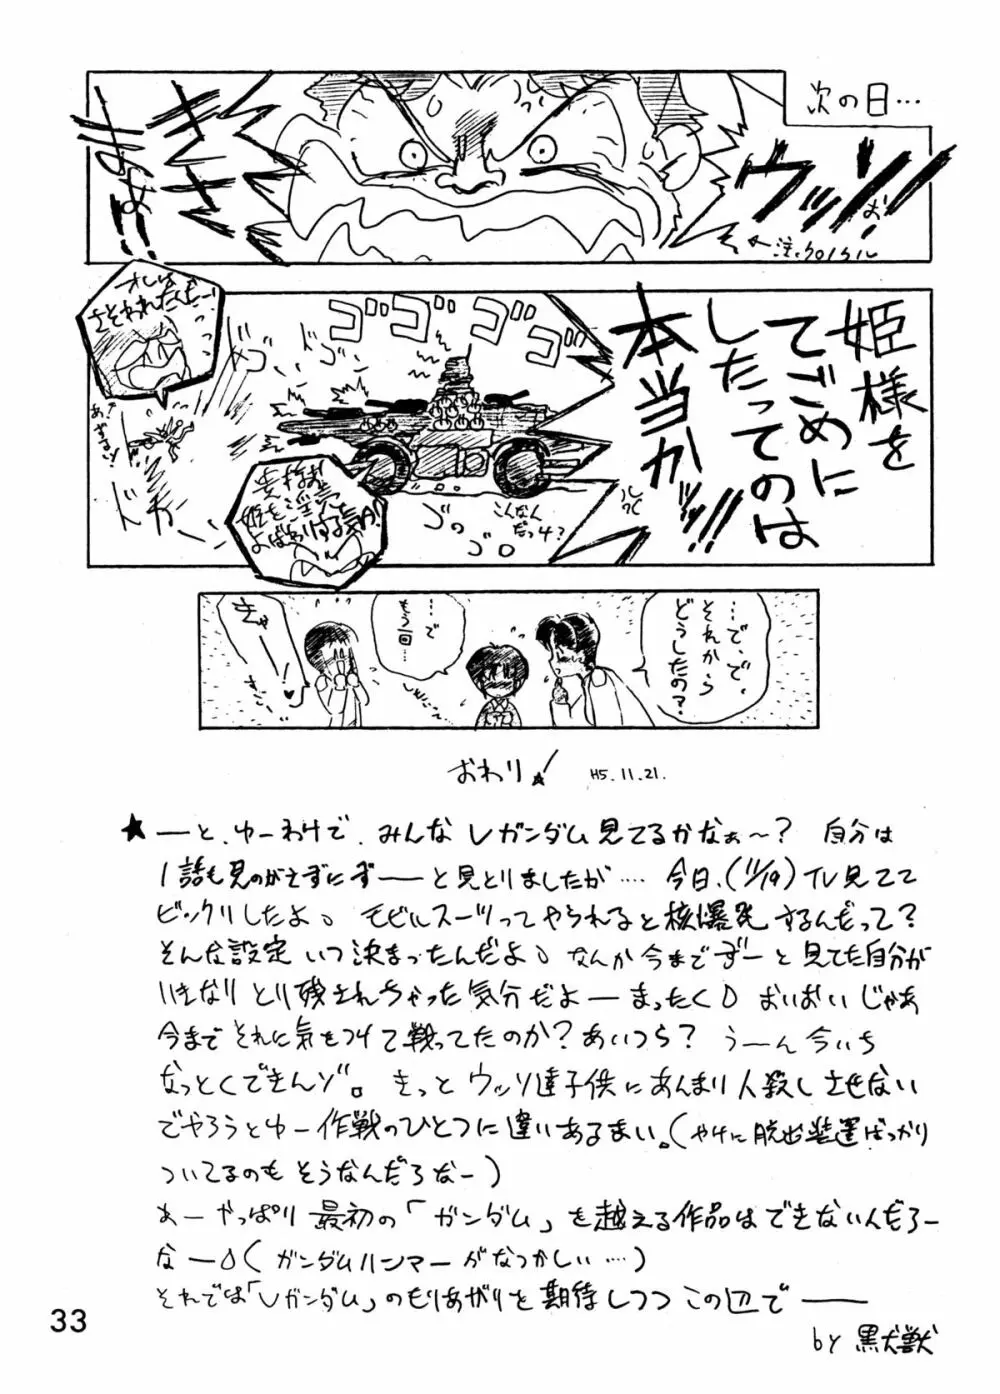 次の日…
ウッソぉ!!
きさまぁ!!
←注.クロノクル
姫様を
てごめに
したってのは
本当か!!
ゴゴゴゴ
オレは
さそわれたんだー!
ドゴ
ドカ
こんなん
だっけ?
…で、で、
それから
どうしたの?
…で
もう一回…
きゃーー!♥
おわり! H5.11.21.
★ーと、ゆーわけで、みんな Vガンダム見てるかなぁ〜? 自分は
1話も見のがさずにずーーと見とりましたが…. 今日、(11/19)TV見てて
ビックリしたよ。 モビルスーツってやられると核爆発するんだって?
そんな設定 いつ決まったんだよ。なんか今までずーと見てた自分が
いきなりとり残されちゃった気分だよーまったく。 おいおいじゃあ
今までそれに気をつけて戦ってたのか?あいつら? うーん今いち
なっとくできんゾ。きっとウッソ達子供にあんまり人殺しさせない
でやろうとゆー作戦のひとつに違いあるまい。(やけに脱出装置ばっかり
ついてるのもそうなんだろなー)
あーやっぱり最初の「ガンダム」を越える作品はできないんだろー
なー。(ガンダムハンマーがなつかしい…)
それでは「Vガンダム」のもりあがりを期待しつつこの辺で――
by 黒犬獣
33